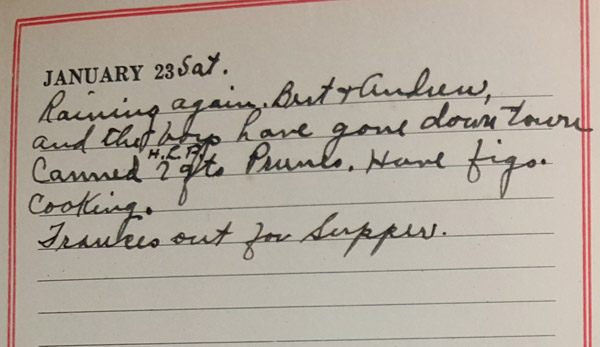 JANUARY 23 Sat.
Raining again. Bert + Andrew,
and the boys have gone down town
Canned 7 qts Prunes. Have figs.
Cooking.
Frances out for Supper.